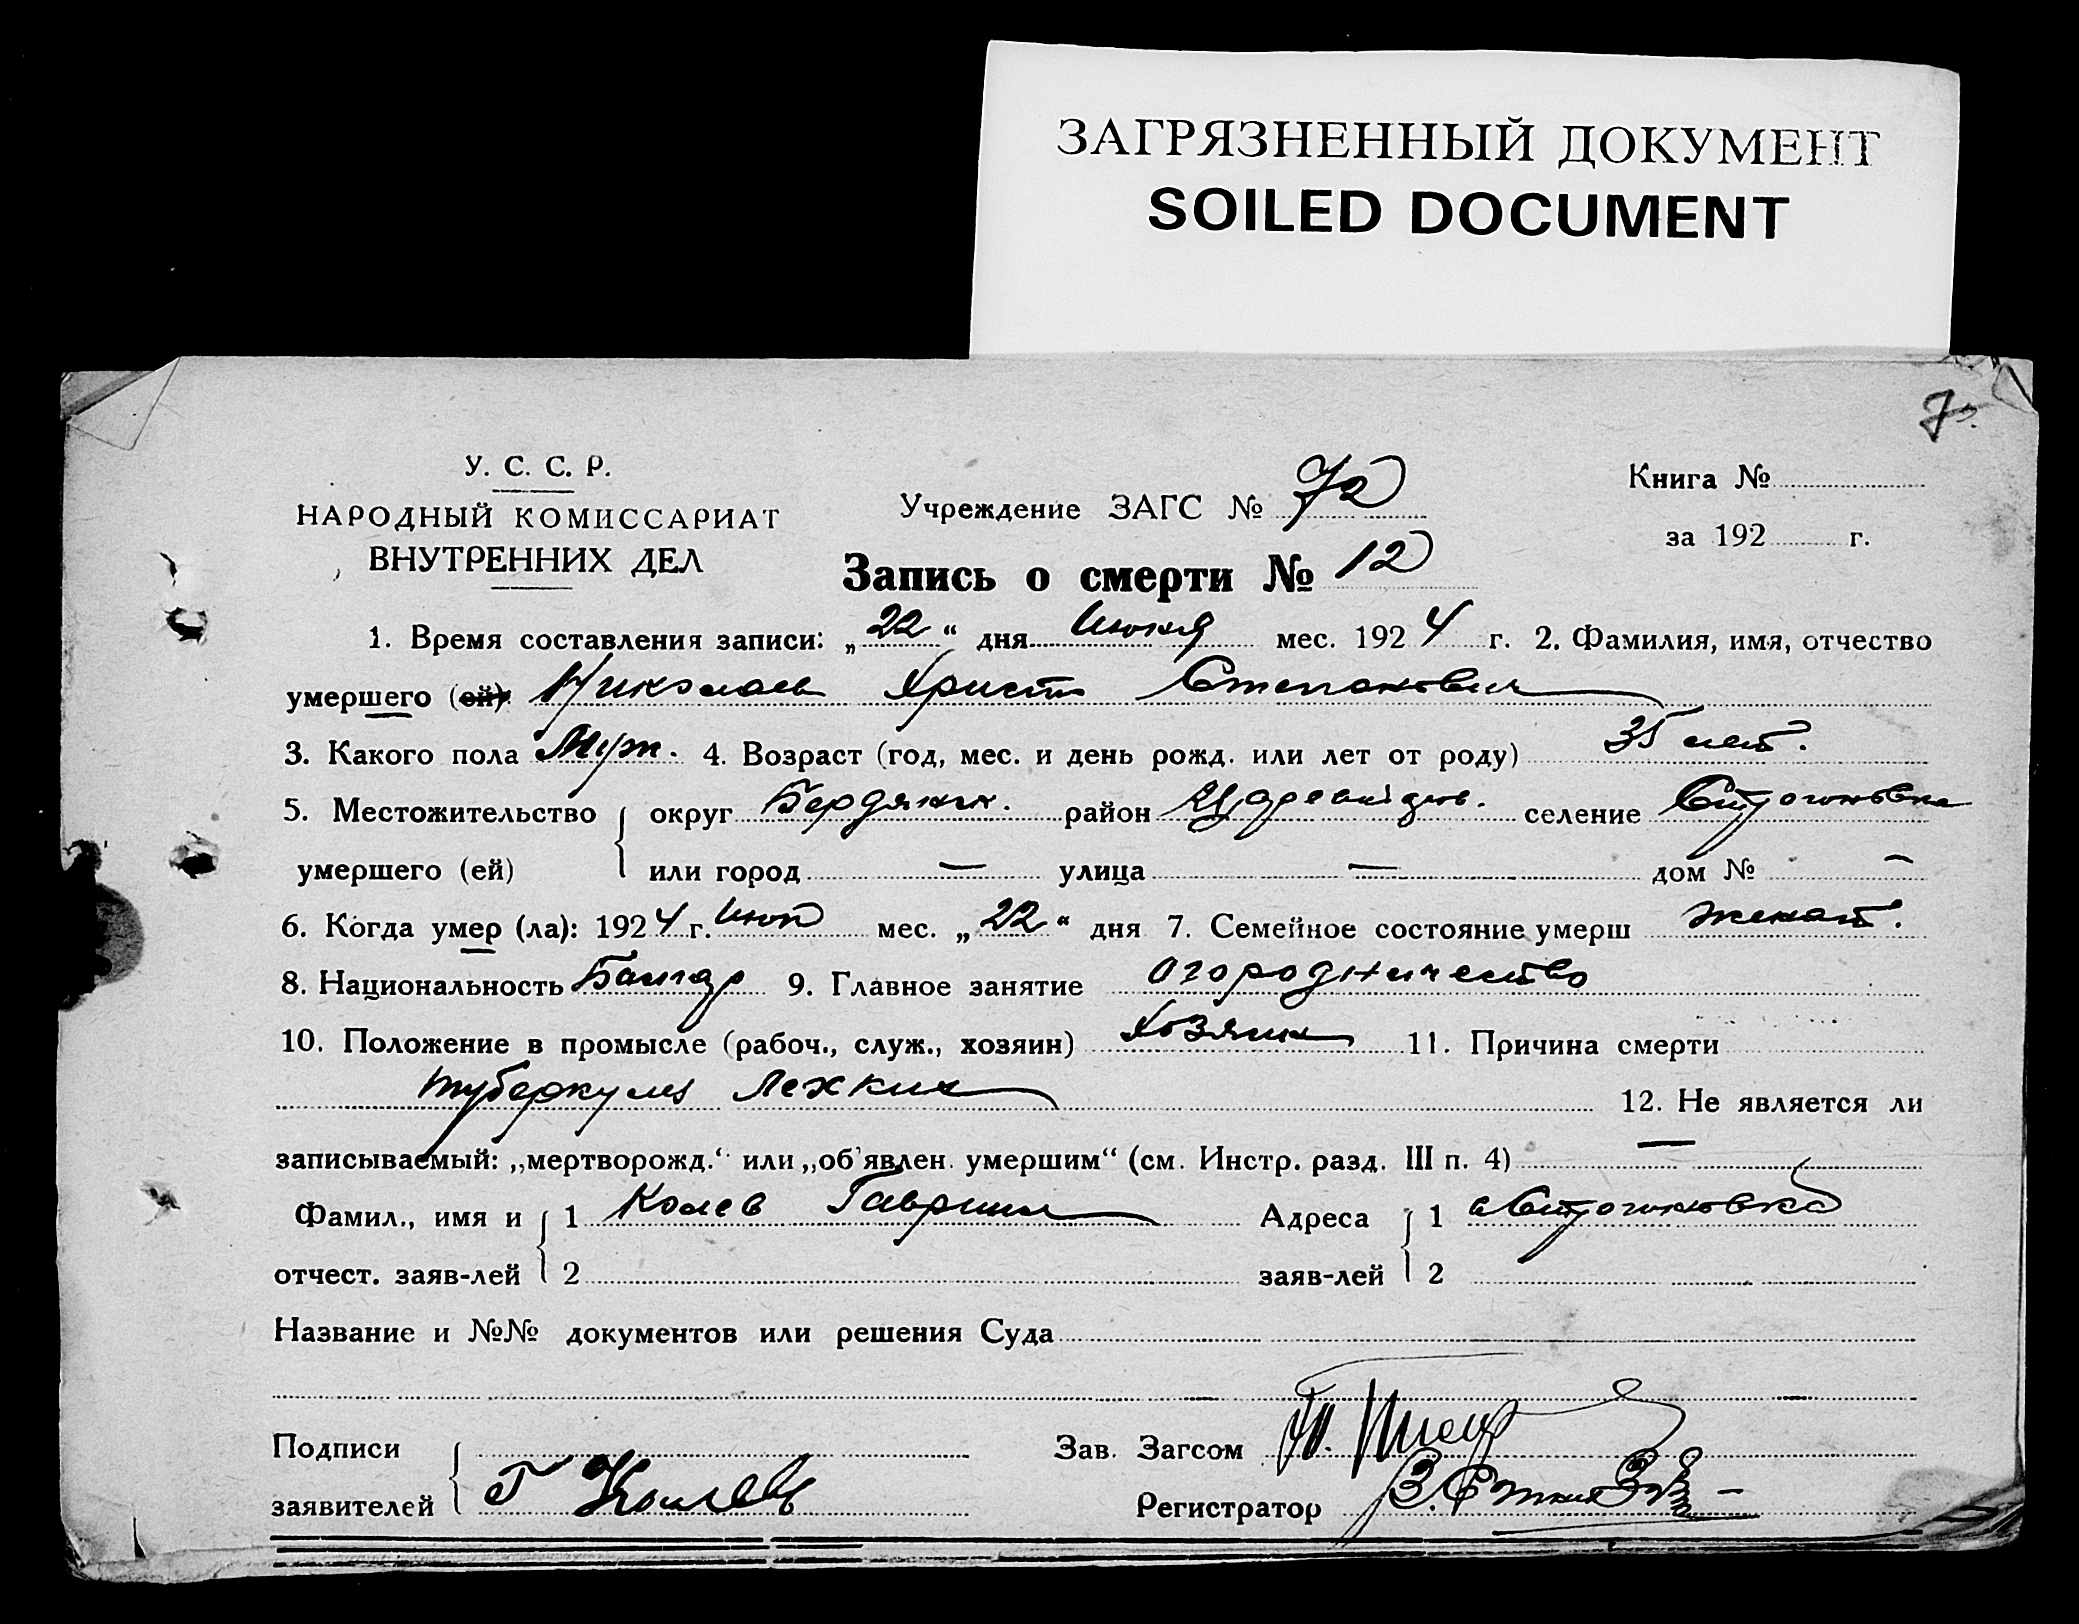 ЗАГРЯЗНЕННЫЙ ДОКУМЕНТ
SOILED DOCUMENT
7
У. С. С. Р.
НАРОДНЫЙ КОМИССАРИАТ
ВНУТРЕННИХ ДЕЛ
Учреждение ЗАГС № 72
Книга №
за 192 г.
Запись о смерти № 12
1. Время составления записи: „22“ дня Июня мес. 1924 г. 2. Фамилия, имя, отчество
умершего (ей) Николаев Христо Степанович
3. Какого пола Муж. 4. Возраст (год, мес. и день рожд. или лет от роду) 35 лет.
5. Местожительство округ Бердянск. район Цареводив. селение Строгоновка
умершего (ей) или город — улица — дом № —
6. Когда умер (ла): 1924 г. Июн мес. „22“ дня 7. Семейное состояние умерш женат.
8. Национальность Болгар 9. Главное занятие огородничество
10. Положение в промысле (рабоч., служ., хозяин) Хозяин 11. Причина смерти
туберкулез Лехких 12. Не является ли
записываемый: „мертворожд.“ или „об'явлен. умершим“ (см. Инстр. разд. III п. 4) —
Фамил., имя и 1 Колев Гавриил Адреса 1 с Строгоновка
отчест. заяв-лей 2 заяв-лей 2
Название и №№ документов или решения Суда
Подписи Зав. Загсом
заявителей Г Колев Регистратор